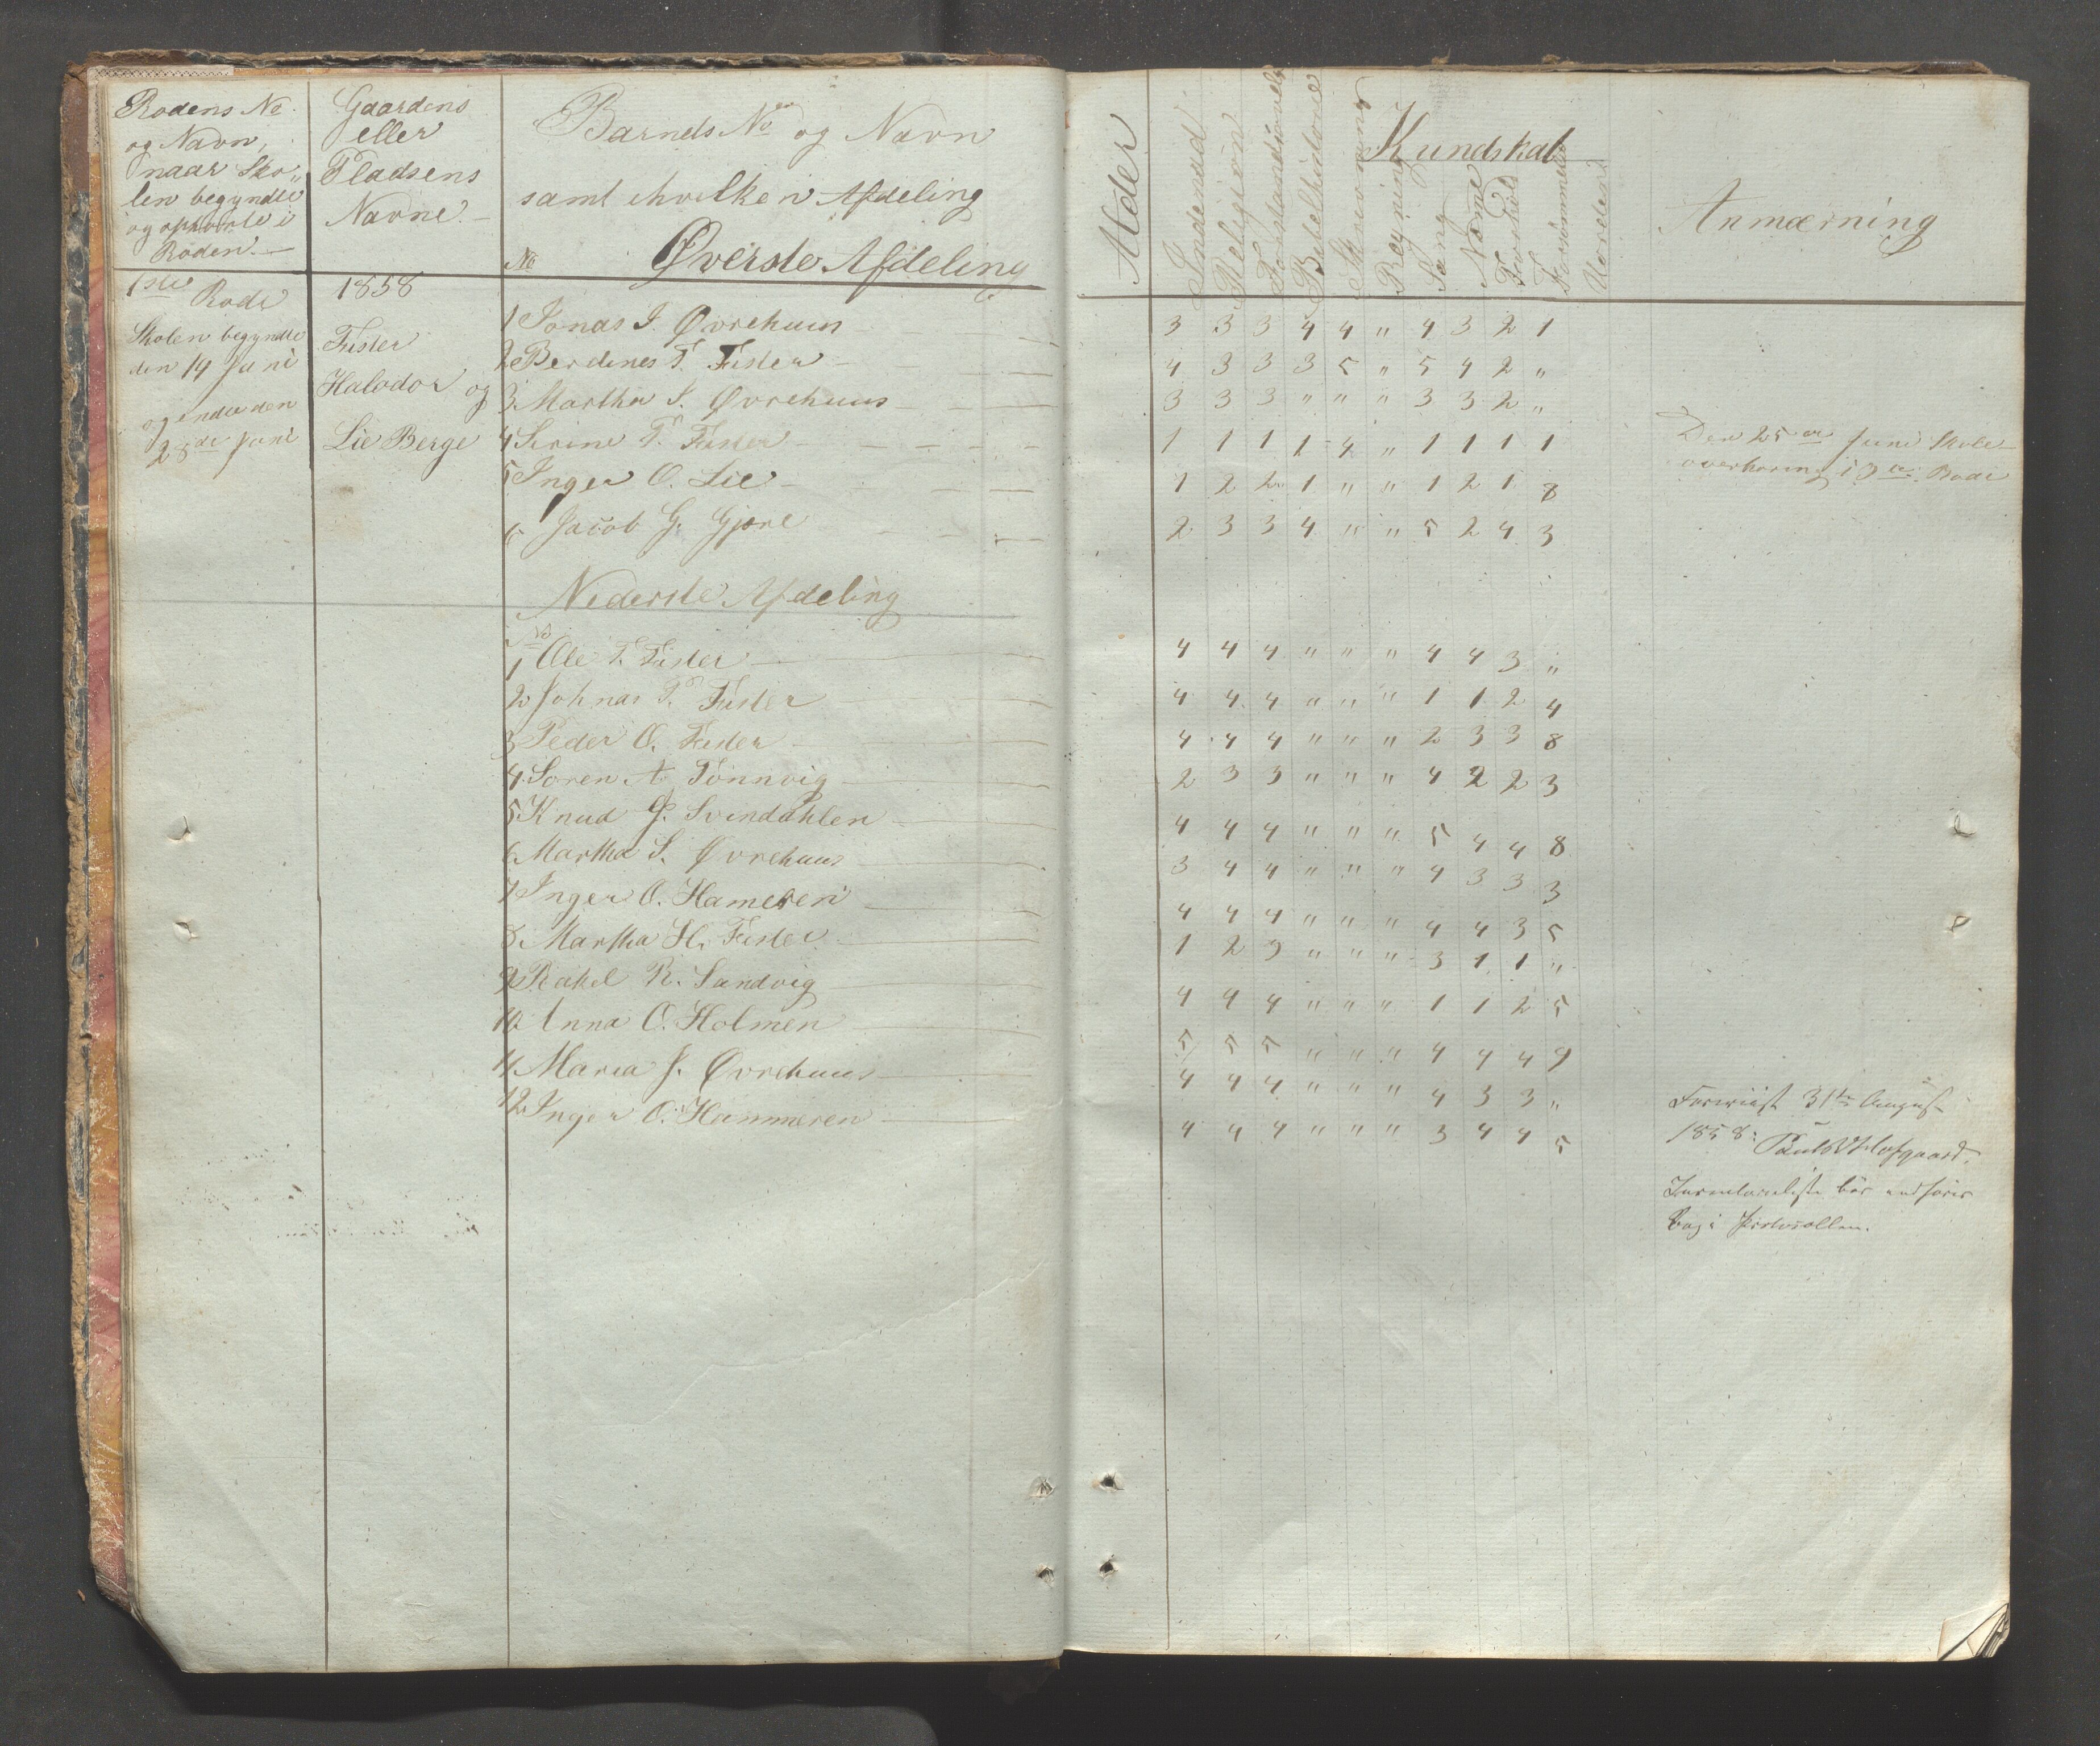 Rodens No
og Navn,
naar Sko„
len begyndte
og ophørte i
Roden.
Gaardens
eller
Pladsens
Navne.
Barnets No og Navn
samt i hvilken Afdeling
No Øverste Afdeling
1ste Rode
Skolen begyndte
den 14 Juni
og endte den
28de Juni
1858
Fister
Halvdor og
Lie Berge
1 Jonas J. Øvrehuus
2 Berdines T. Fister
3 Martha S. Øvrehuus
4 Serine T. Fister
5 Inger O. Lie
6 Jacob G. Gjøre
Nederste Afdeling
No
1 Ole T. Fister
2 Johnas T. Fister
3 Peder O. Fister
4 Soren A. Tönnvig
5 Knud G. Svindahlen
6 Martha S. Øvrehuus
7 Inger O. Hameren
8 Martha H. Fister
9 Rakel R. Sandvig
10 Anna O. Holmen
11 Maria J. Øvrehuus
12 Inger O. Hammeren
Alder
Kundskab
Indenad
Religion
Forstandsøvelse
Bibelhistorie
Skrivning
Regning
Sang
Nemme
Forhold
Forsømmelse
Uorden
Anmærning
3 3 3 4 4 " 4 3 2 1
4 3 3 3 5 " 5 4 2 "
3 3 3 " " " 3 3 2 "
1 1 1 1 4 " 1 1 1 1
1 2 2 1 " " 1 2 1 8
2 3 3 4 " " 5 2 4 3
4 4 4 " " " 4 4 3 "
4 4 4 " " " 1 1 2 4
4 4 4 " " " 2 3 3 8
2 3 3 " " " 4 2 2 3
4 4 4 " " " 5 4 4 8
3 4 4 " " " 4 3 3 3
4 4 4 " " " 4 4 3 5
1 2 3 " " " 3 1 1 "
4 4 4 " " " 1 1 2 5
5 5 5 " " " 4 4 4 9
4 4 4 " " " 4 3 3 "
4 4 4 " " " 3 4 4 5
Den 25de Juni Skole-
overhøring i 3die Rode
Foreviist 31te August
1858:
Inventarieliste bør anføres
bag i Protocollen.